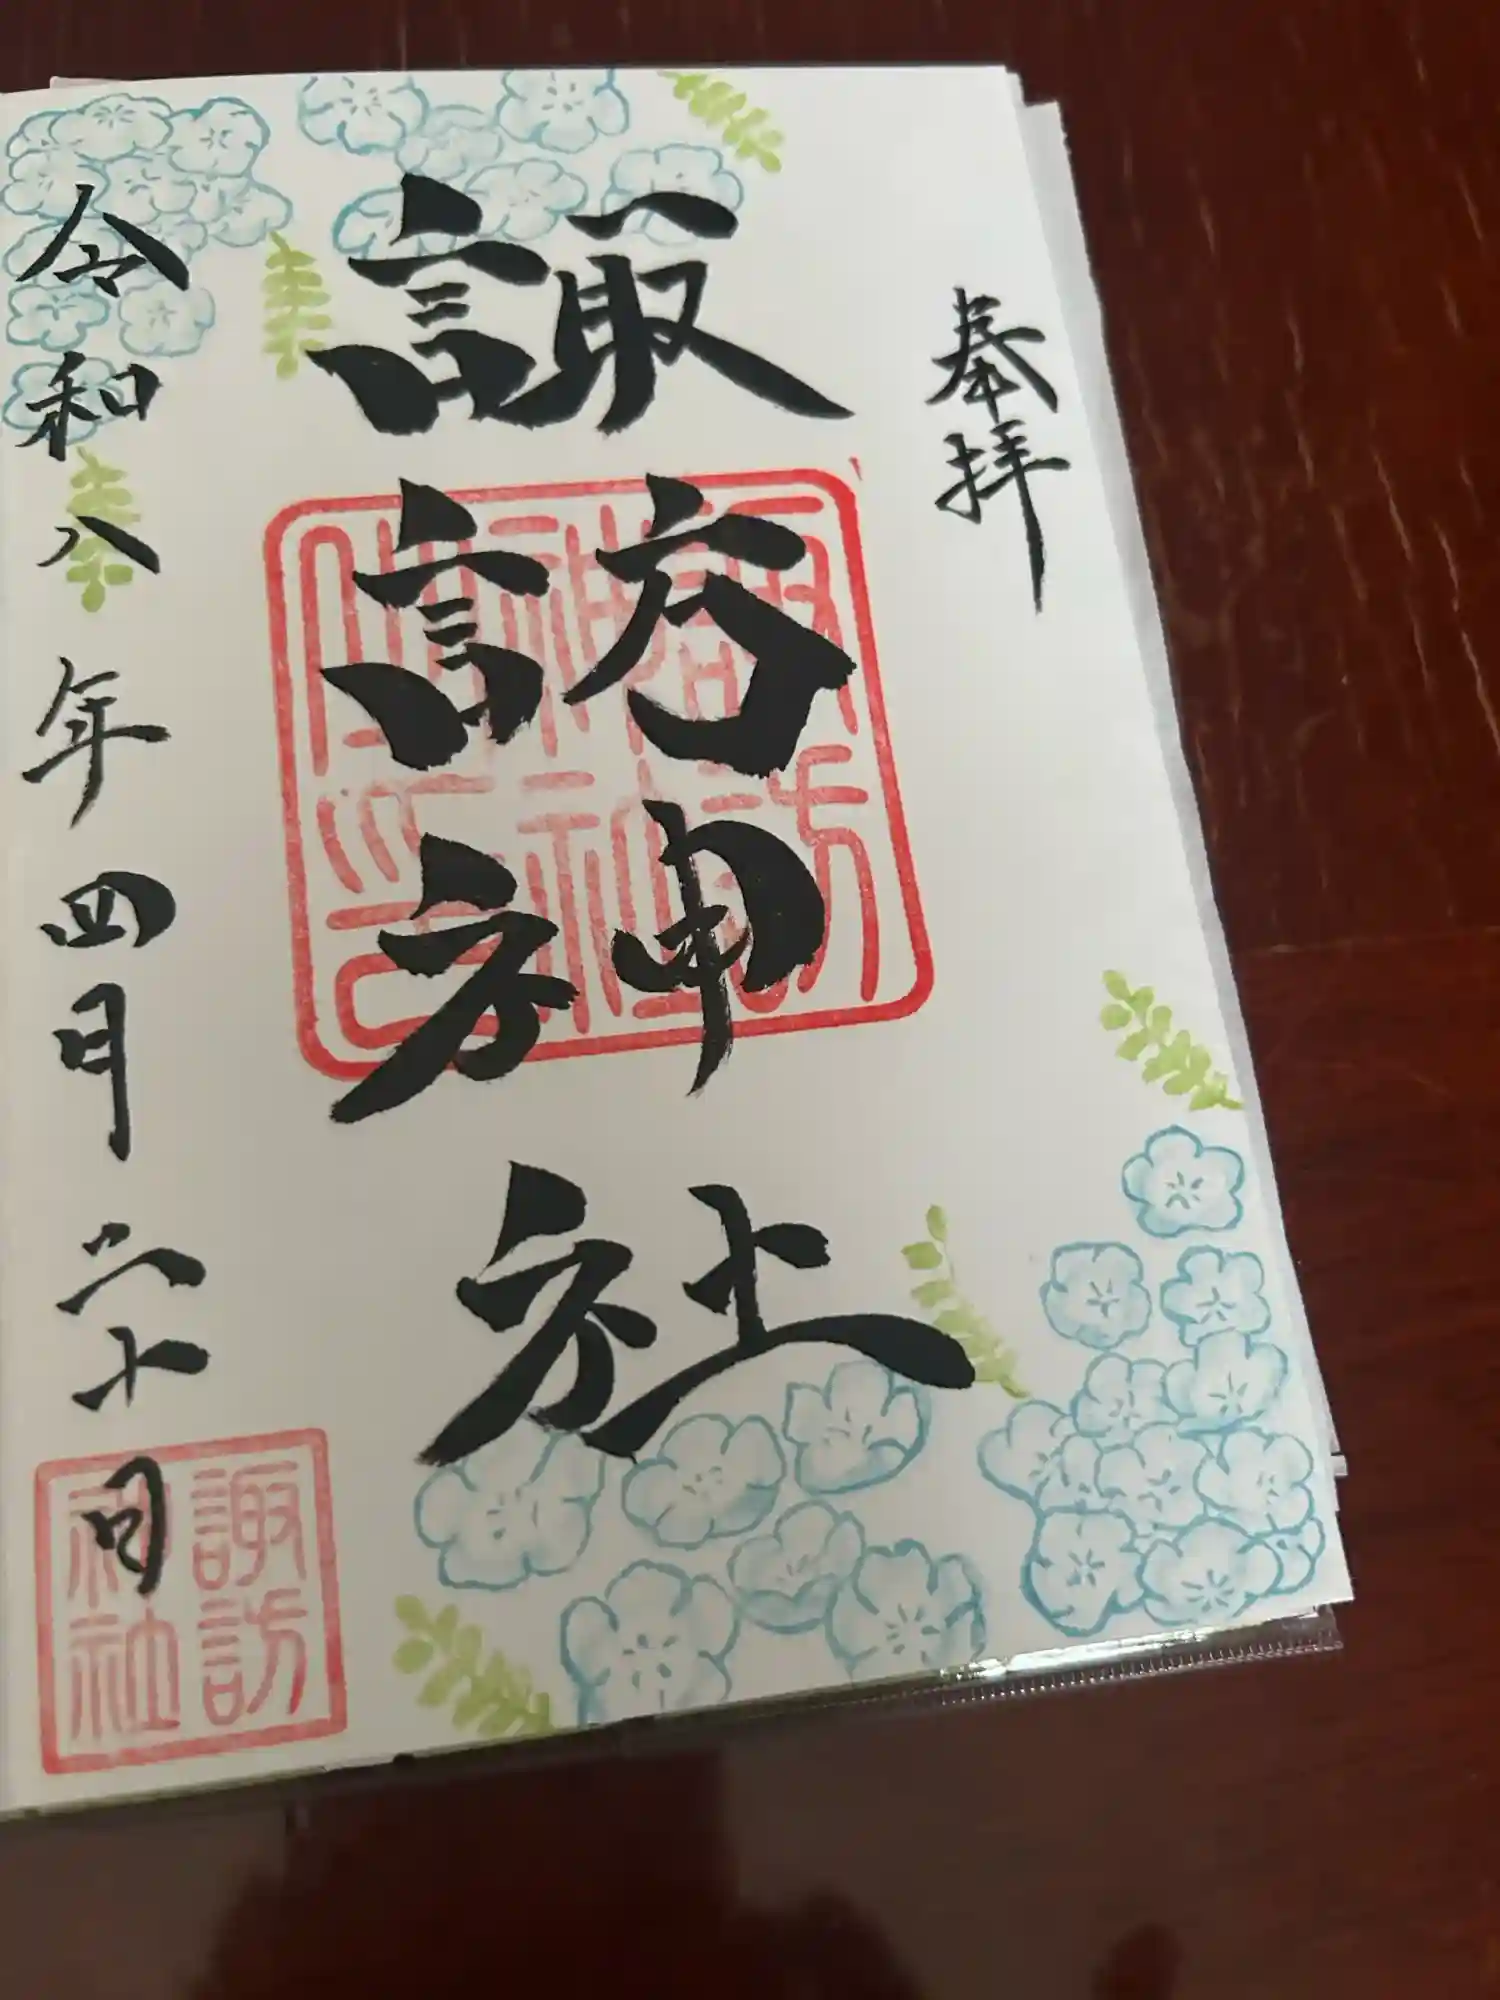 奉拝
諏訪神社
令和八年四月二十日
諏訪
神社